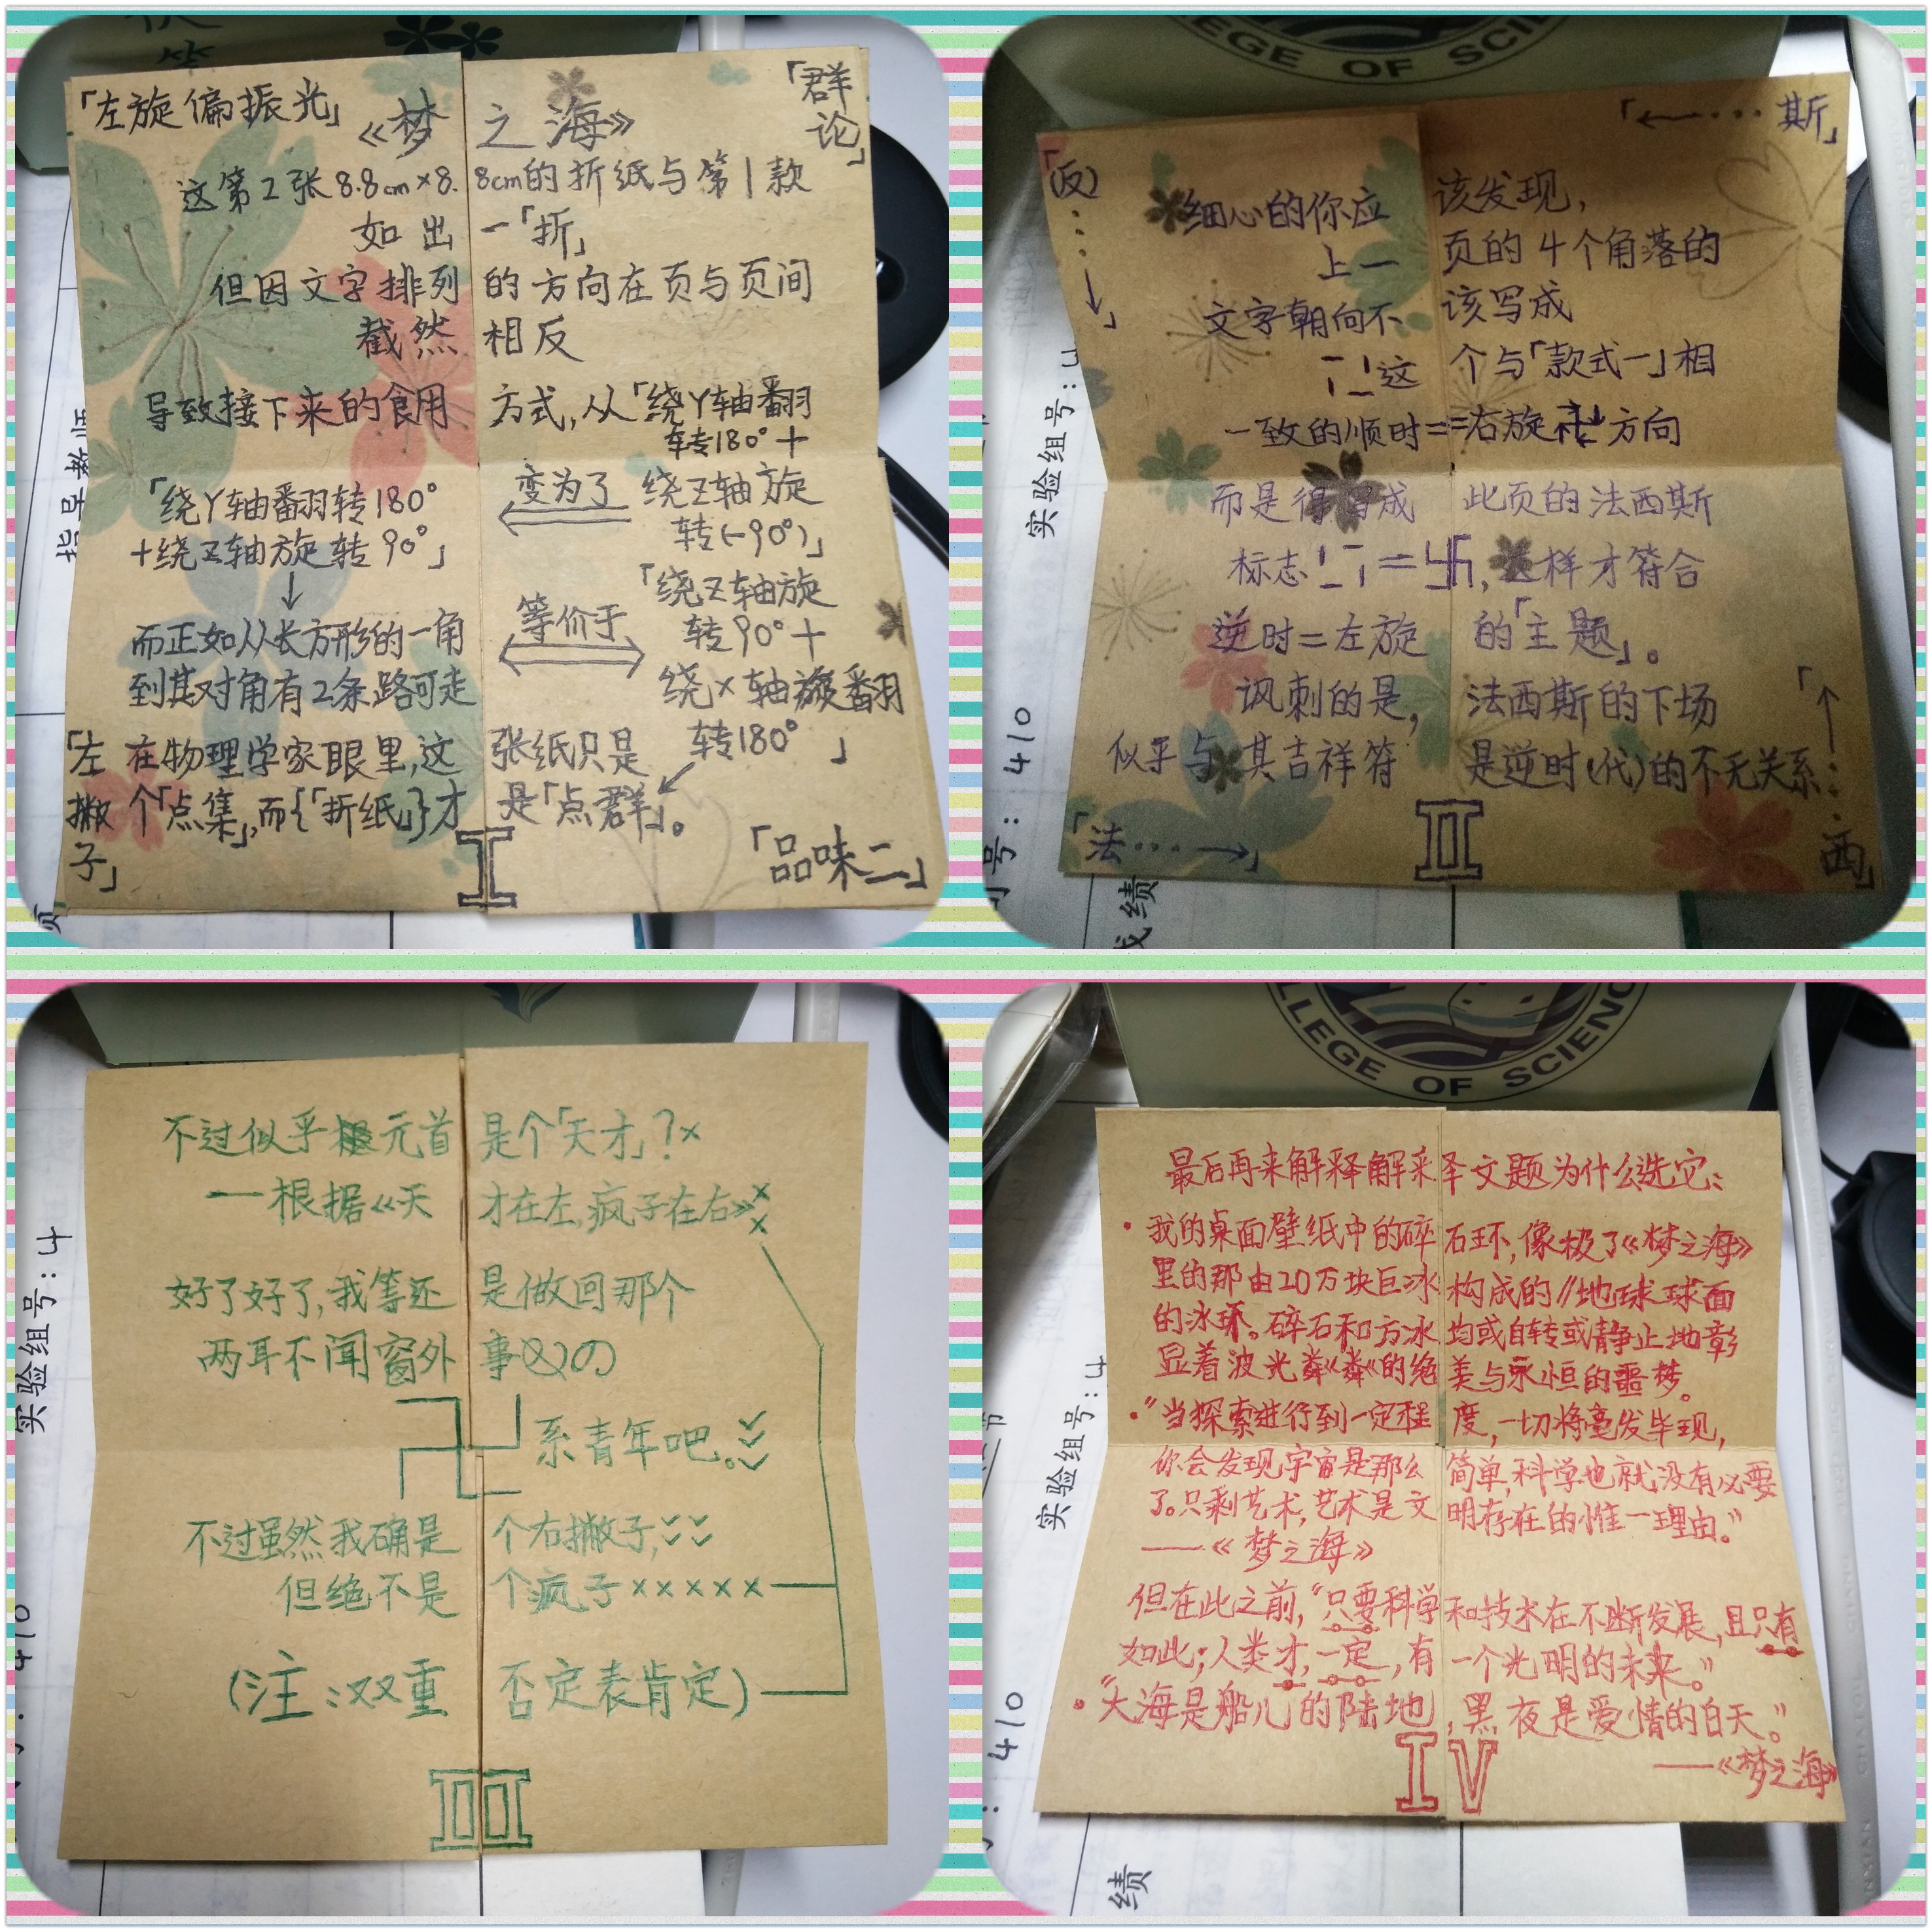 「左旋偏振光」
《梦之海》
「群论」
这第2张8.8cm×8.8cm的折纸与第1款
如出一「折」
但因文字排列的方向在页与页间
截然相反
导致接下来的食用方式,从「绕Y轴翻
转180°+
绕Z轴旋
转(-90°)」
变为了
「绕Y轴翻转180°
+绕Z轴旋转90°」
等价于
「绕Z轴旋
转90°+
绕X轴旋翻
转180°」
而正如从长方形的一角
到其对角有2条路可走
在物理学家眼里,这张纸只是
个「点集」,而{「折纸」}才是「点群」。
「左撇子」
I
「品味二」
「反…→」
「←…斯」
细心的你应该发现,
上一页的4个角落的
文字朝向不该写成
这个与「款式一」相
一致的顺时==右旋 方向
而是得写成此页的法西斯
标志 = 卐,这样才符合
逆时=左旋的「主题」。
讽刺的是,法西斯的下场
似乎与其吉祥符是逆时(代)的不无关系
「法…→」
II
「↑…西」
不过似乎 元首是个「天才」?×
——根据《天才在左,疯子在右》××
好了好了,我等还是做回那个
两耳不闻窗外事の
系青年吧。✓✓✓
不过虽然我确是个右撇子,✓✓✓✓
但绝不是个疯子×××××
(注:双重否定表肯定)
III
最后再来解释解释文题为什么选它:
·我的桌面壁纸中的碎石环,像极了《梦之海》
里的那由20万块巨冰构成的//地球球面
的冰环。碎石和方冰均或自转或静止地彰
显着波光粼粼的绝美与永恒的噩梦。
·"当探索进行到一定程度,一切将毫发毕现,
你会发现宇宙是那么简单,科学也就没有必要
了。只剩艺术,艺术是文明存在的惟一理由。"
——《梦之海》
但在此之前,"只要科学和技术在不断发展,且只有
如此;人类才,一定,有一个光明的未来。"
·"大海是船儿的陆地,黑夜是爱情的白天。"
——《梦之海》
IV
COLLEGE OF SCIENC
EGE OF SCI
实验组号:4
实验组号:4
实验组号:4
410
410
410
指导教师
成绩
绩